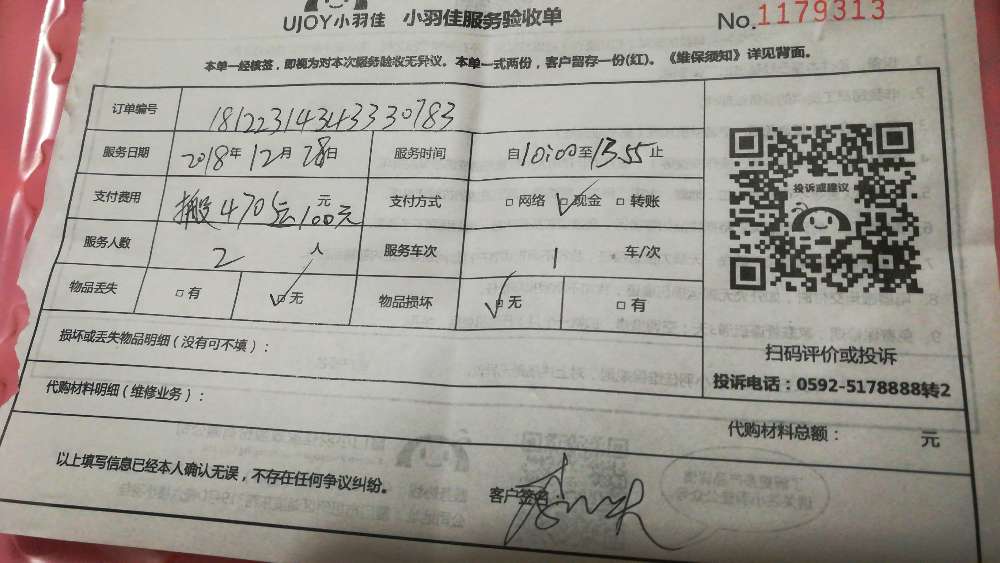 UJOY小羽佳 小羽佳服务验收单 No.1179313
本单一经核签，即视为对本次服务验收无异议。本单一式两份，客户留存一份(红)。《维保须知》详见背面。
订单编号 18122314343330783
服务日期 2018年12月28日 服务时间 自10:00至13:55止
支付费用 搬470元 100元 支付方式 □网络 □现金 □转账
服务人数 2人 服务车次 1 车/次
物品丢失 □有 □无 物品损坏 □无 □有
损坏或丢失物品明细(没有可不填)：
代购材料明细(维修业务)：
投诉或建议
扫码评价或投诉
投诉电话：0592-5178888转2
代购材料总额： 元
以上填写信息已经本人确认无误，不存在任何争议纠纷。
客户签名：